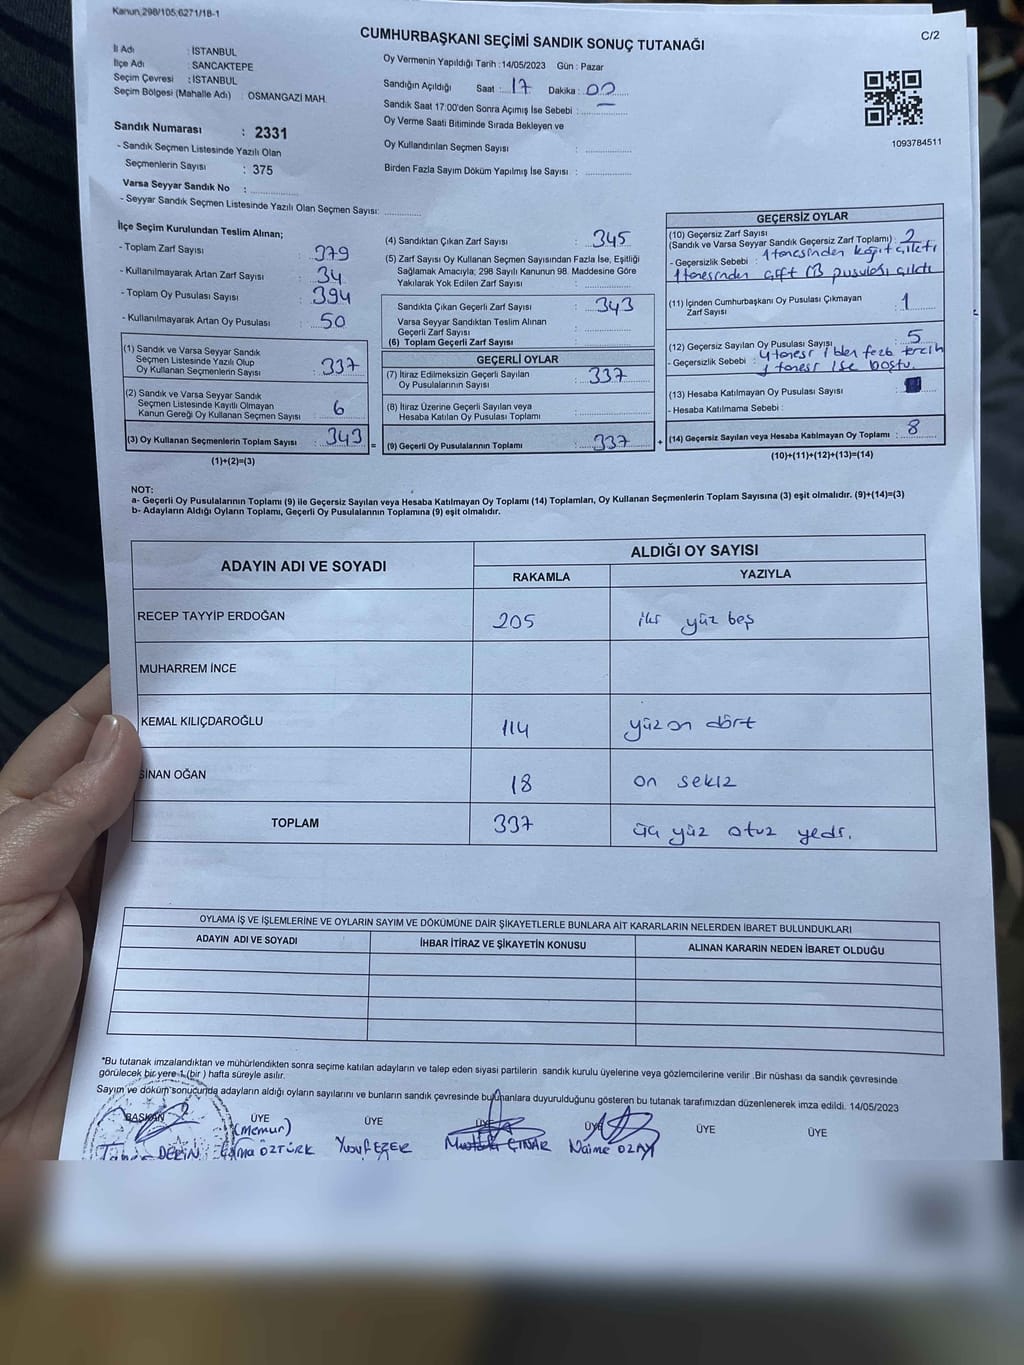 Kanun,298/105;6271/18-1
C/2
CUMHURBAŞKANI SEÇİMİ SANDIK SONUÇ TUTANAĞI
İl Adı : İSTANBUL
İlçe Adı : SANCAKTEPE
Seçim Çevresi : İSTANBUL
Seçim Bölgesi (Mahalle Adı) : OSMANGAZİ MAH.
Sandık Numarası : 2331
- Sandık Seçmen Listesinde Yazılı Olan
Seçmenlerin Sayısı : 375
Varsa Seyyar Sandık No : ..............
- Seyyar Sandık Seçmen Listesinde Yazılı Olan Seçmen Sayısı: ............
Oy Vermenin Yapıldığı Tarih :14/05/2023 Gün : Pazar
Sandığın Açıldığı Saat : 17 Dakika : 00
Sandık Saat 17:00'den Sonra Açımış İse Sebebi : —
Oy Verme Saati Bitiminde Sırada Bekleyen ve
Oy Kullandırılan Seçmen Sayısı : ..............
Birden Fazla Sayım Döküm Yapılmış İse Sayısı : ..............
1093784511
İlçe Seçim Kurulundan Teslim Alınan;
- Toplam Zarf Sayısı : 379
- Kullanılmayarak Artan Zarf Sayısı : 34
- Toplam Oy Pusulası Sayısı : 394
- Kullanılmayarak Artan Oy Pusulası : 50
(1) Sandık ve Varsa Seyyar Sandık
Seçmen Listesinde Yazılı Olup
Oy Kullanan Seçmenlerin Sayısı : 337
(2) Sandık ve Varsa Seyyar Sandık
Seçmen Listesinde Kayıtlı Olmayan
Kanun Gereği Oy Kullanan Seçmen Sayısı : 6
(3) Oy Kullanan Seçmenlerin Toplam Sayısı : 343 =
(1)+(2)=(3)
(4) Sandıktan Çıkan Zarf Sayısı : 345
(5) Zarf Sayısı Oy Kullanan Seçmen Sayısından Fazla İse, Eşitliği
Sağlamak Amacıyla; 298 Sayılı Kanunun 98. Maddesine Göre
Yakılarak Yok Edilen Zarf Sayısı : ..............
Sandıkta Çıkan Geçerli Zarf Sayısı : 343
Varsa Seyyar Sandıktan Teslim Alınan
Geçerli Zarf Sayısı : ..............
(6) Toplam Geçerli Zarf Sayısı
GEÇERLİ OYLAR
(7) İtiraz Edilmeksizin Geçerli Sayılan
Oy Pusulalarının Sayısı : 337
(8) İtiraz Üzerine Geçerli Sayılan veya
Hesaba Katılan Oy Pusulası Toplamı : ..............
(9) Geçerli Oy Pusulalarının Toplamı : 337 +
GEÇERSİZ OYLAR
(10) Geçersiz Zarf Sayısı
(Sandık ve Varsa Seyyar Sandık Geçersiz Zarf Toplamı) : 2
- Geçersizlik Sebebi : 1 tanesinden kağıt çıktı
1 tanesinden çift CB pusulası çıktı
(11) İçinden Cumhurbaşkanı Oy Pusulası Çıkmayan
Zarf Sayısı : 1
(12) Geçersiz Sayılan Oy Pusulası Sayısı : 5
- Geçersizlik Sebebi : 4 tanesi 1 den fazla tercih
1 tanesi ise boştu.
(13) Hesaba Katılmayan Oy Pusulası Sayısı :
- Hesaba Katılmama Sebebi :
(14) Geçersiz Sayılan veya Hesaba Katılmayan Oy Toplamı : 8
(10)+(11)+(12)+(13)=(14)
NOT:
a- Geçerli Oy Pusulalarının Toplamı (9) ile Geçersiz Sayılan veya Hesaba Katılmayan Oy Toplamı (14) Toplamları, Oy Kullanan Seçmenlerin Toplam Sayısına (3) eşit olmalıdır. (9)+(14)=(3)
b- Adayların Aldığı Oyların Toplamı, Geçerli Oy Pusulalarının Toplamına (9) eşit olmalıdır.
ADAYIN ADI VE SOYADI ALDIĞI OY SAYISI
RAKAMLA YAZIYLA
RECEP TAYYİP ERDOĞAN 205 iki yüz beş
MUHARREM İNCE
KEMAL KILIÇDAROĞLU 114 yüz on dört
SİNAN OĞAN 18 on sekiz
TOPLAM 337 üç yüz otuz yedi.
OYLAMA İŞ VE İŞLEMLERİNE VE OYLARIN SAYIM VE DÖKÜMÜNE DAİR ŞİKAYETLERLE BUNLARA AİT KARARLARIN NELERDEN İBARET BULUNDUKLARI
ADAYIN ADI VE SOYADI İHBAR İTİRAZ VE ŞİKAYETİN KONUSU ALINAN KARARIN NEDEN İBARET OLDUĞU
*Bu tutanak imzalandıktan ve mühürlendikten sonra seçime katılan adayların ve talep eden siyasi partilerin sandık kurulu üyelerine veya gözlemcilerine verilir .Bir nüshası da sandık çevresinde
görülecek bir yere 1 (bir ) hafta süreyle asılır.
Sayım ve döküm sonucunda adayların aldığı oyların sayılarını ve bunların sandık çevresinde bulunanlara duyurulduğunu gösteren bu tutanak tarafımızdan düzenlenerek imza edildi. 14/05/2023
BAŞKAN ÜYE ÜYE ÜYE ÜYE ÜYE ÜYE
(Memur)
DERİN ÖZTÜRK Yusuf EZER Mustafa ÇINAR Naime ÖZAY